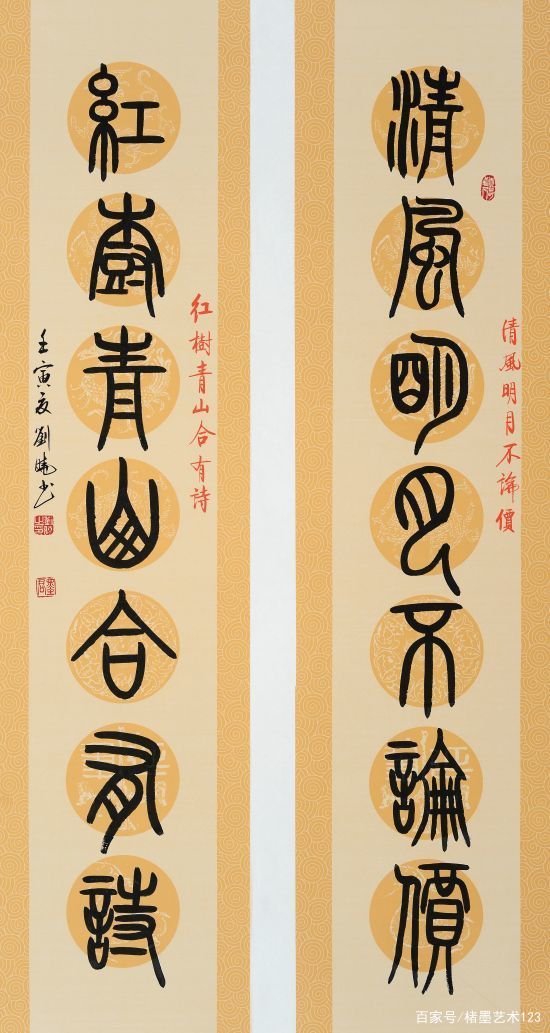 清風明月不論價
清風明月不論價
紅樹青山合有詩
红樹青山合有詩
壬寅夏劉曉書
百家号/楮墨艺术123